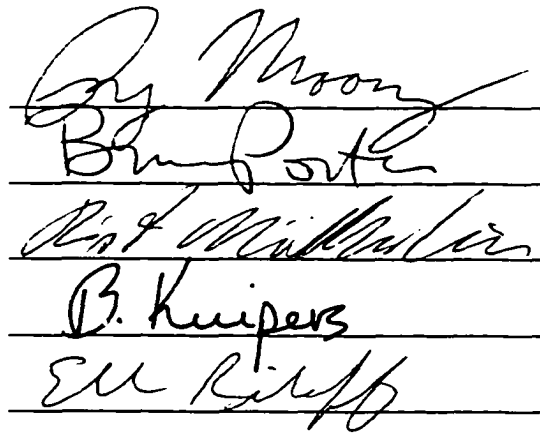 Ray Mooney
Bruce Porter
Risto Miikkulainen
B. Kuipers
Riloff